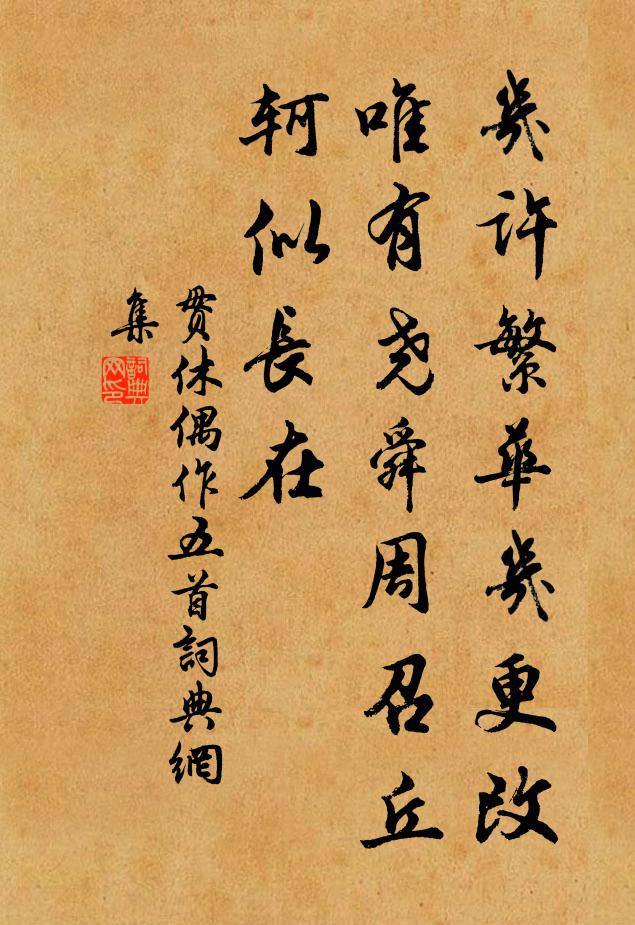 幾許繁華幾更改
唯有尧舜周召丘
軻似長在
贯休偶作五首詞典網
集
詞典
网印